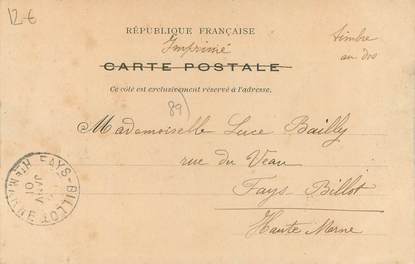 12€
RÉPUBLIQUE FRANÇAISE
Imprimé
timbre
au dos
CARTE POSTALE
Ce côté est exclusivement réservé à l'adresse.
89
Mademoiselle Luce Bailly
rue du Veau
Fays Billot
Haute Marne
FAYS-BILLOT
JANV
01
HTE MARNE